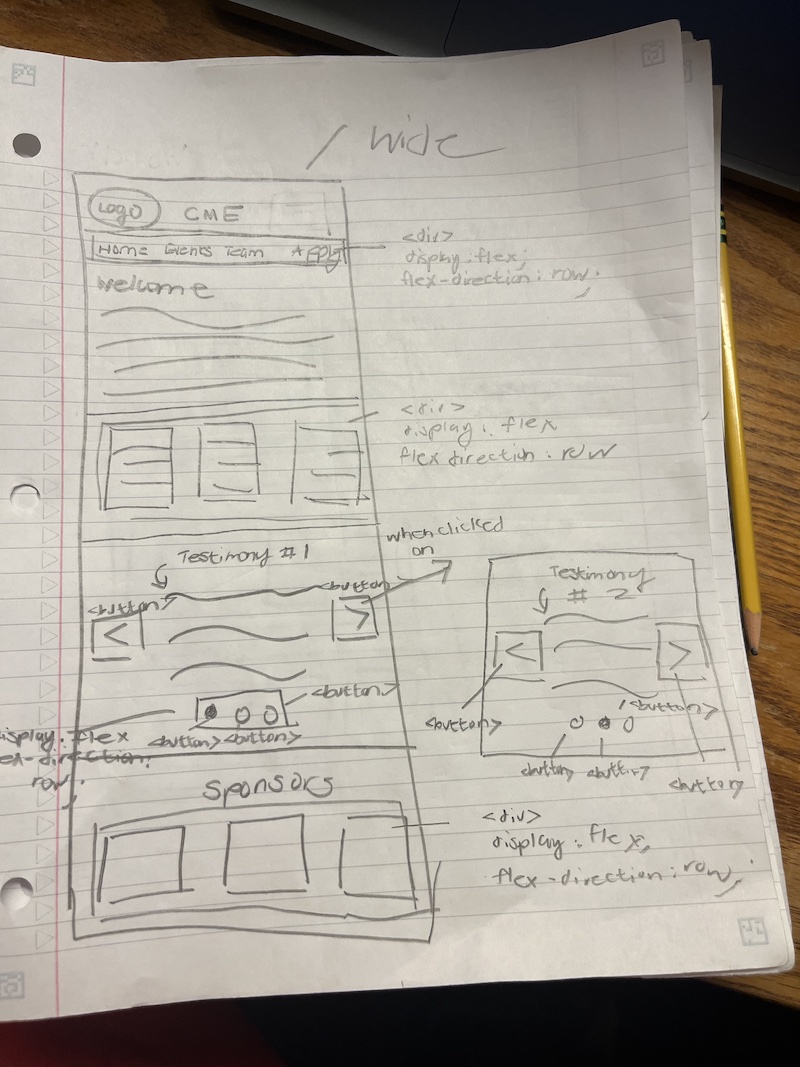 / wide
Logo CME
Home Events Team Apply
<div>
display: flex;
flex-direction: row;
Welcome
<div>
display: flex
flex direction: row
Testimony #1
when clicked
on
<button>
<button>
<
>
<button>
<button> <button>
isplay: flex
ex-direction:
row;
Testimony
# 2
<
>
<button>
<button>
<button> <button>
<button>
Sponsors
<div>
display: flex;
flex-direction: row;